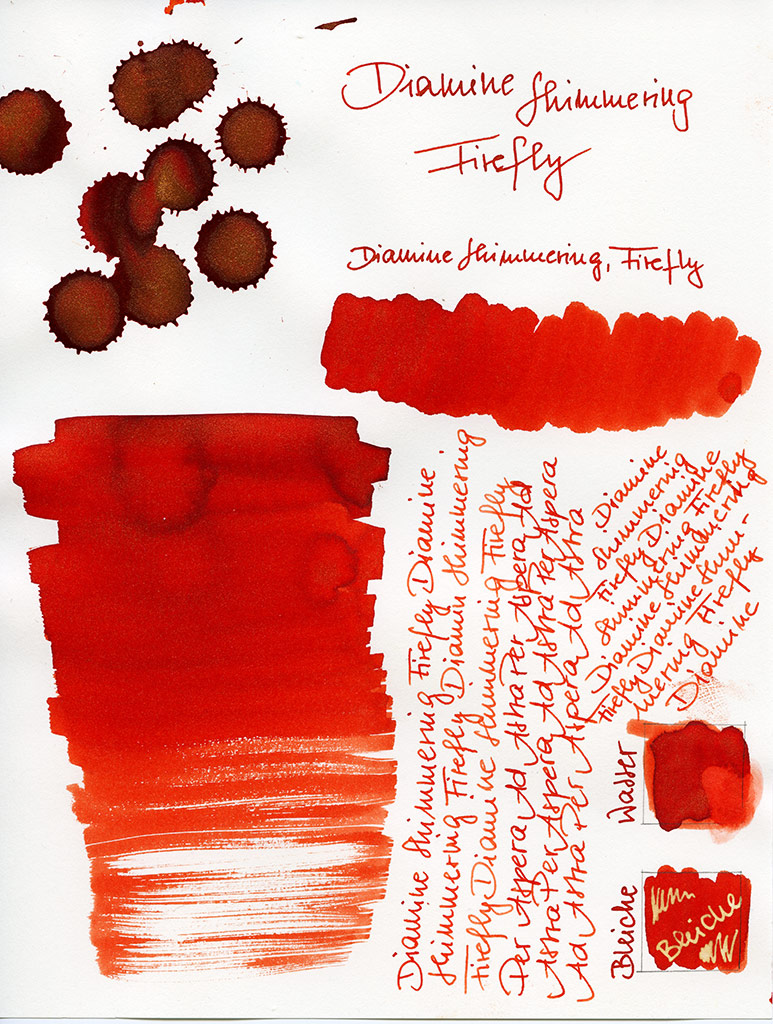 Diamine Shimmering
Firefly
Diamine Shimmering, Firefly
Diamine Shimmering Firefly Diamine
Shimmering Firefly Diamin Shimmering
Firefly Diamine Shimmering Firefly
Per Aspera Ad Astra Per Aspera Ad
Astra Per Aspera Ad Astra Per Aspera
Ad Astra Per Aspera Ad Astra
Diamine
Shimmering
Firefly Diamine
Shimmering Firefly
Diamine Shimmering
Firefly Diamine Shim-
mering Firefly
Diamine
Wasser
Bleiche
Bleiche